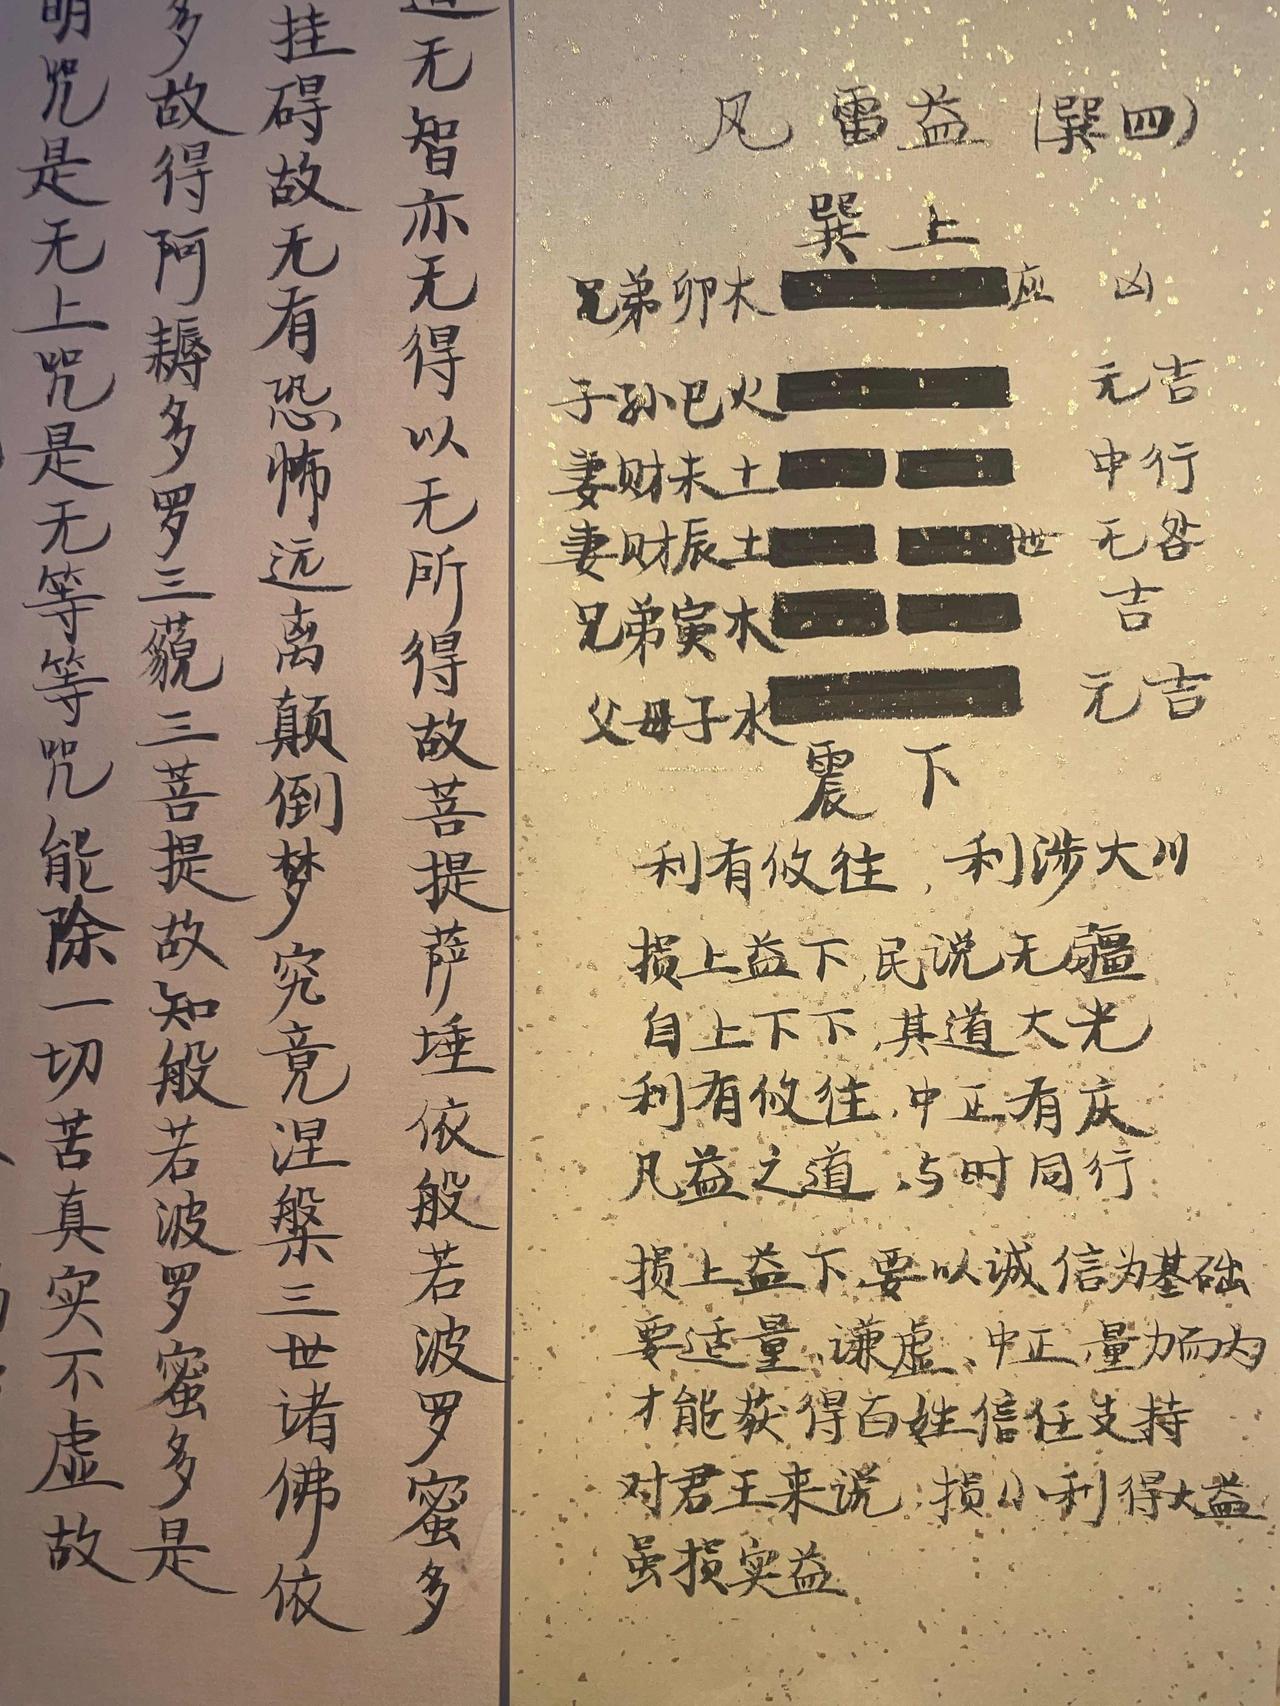 风雷益（巽四）
巽上
兄弟卯木 应 凶
子孙巳火 元吉
妻财未土 中行
妻财辰土 世 无咎
兄弟寅木 吉
父母子水 元吉
震下
利有攸往，利涉大川
损上益下，民说无疆
自上下下，其道大光
利有攸往，中正有庆
凡益之道，与时同行
损上益下，要以诚信为基础
要适量、谦虚、中正，量力而为
才能获得百姓信任支持
对君王来说，损小利得大益
虽损实益
无智亦无得以无所得故菩提萨埵依般若波罗蜜多
挂碍故无有恐怖远离颠倒梦究竟涅槃三世诸佛依
多故得阿耨多罗三藐三菩提故知般若波罗蜜多是
明咒是无上咒是无等等咒能除一切苦真实不虚故